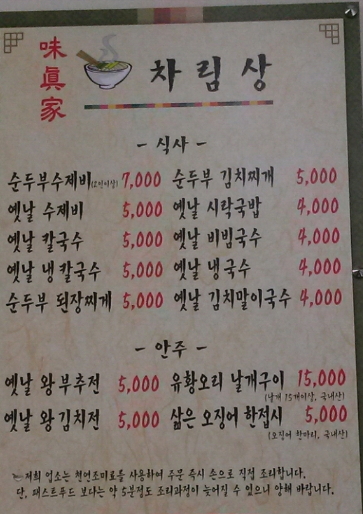 味眞家
차림상
- 식사 -
순두부수제비(2인이상) 7,000 순두부 김치찌개 5,000
옛날 수제비 5,000 옛날 시락국밥 4,000
옛날 칼국수 5,000 옛날 비빔국수 4,000
옛날 냉칼국수 5,000 옛날 냉국수 4,000
순두부 된장찌개 5,000 옛날 김치말이국수 4,000
- 안주 -
옛날 왕 부추전 5,000 유황오리 날개구이 15,000
(날개 15개이상, 국내산)
옛날 왕김치전 5,000 삶은 오징어 한접시 5,000
(오징어 한마리, 국내산)
저희 업소는 천연조미료를 사용하여 주문 즉시 손으로 직접 조리합니다.
단, 패스트푸드 보다는 약 5분정도 조리과정이 늦어질 수 있으니 양해 바랍니다.